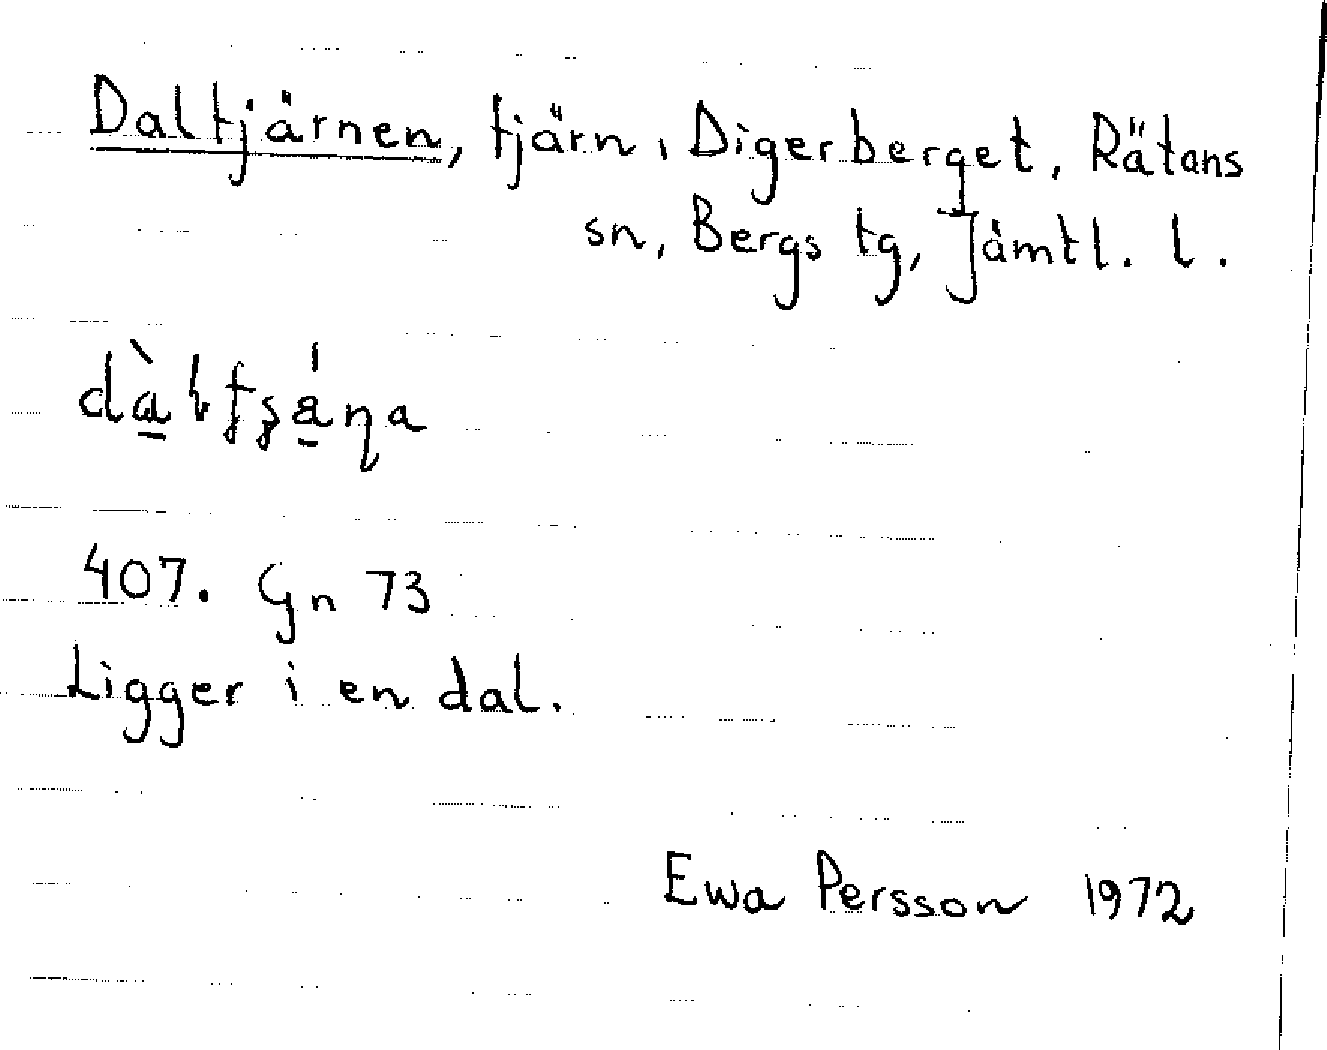 Daltjärnen, tjärn, Digerberget, Rätans
sn, Bergs tg, Jämtl. l.
407. Gn 73
Ligger i en dal.
Ewa Persson 1972